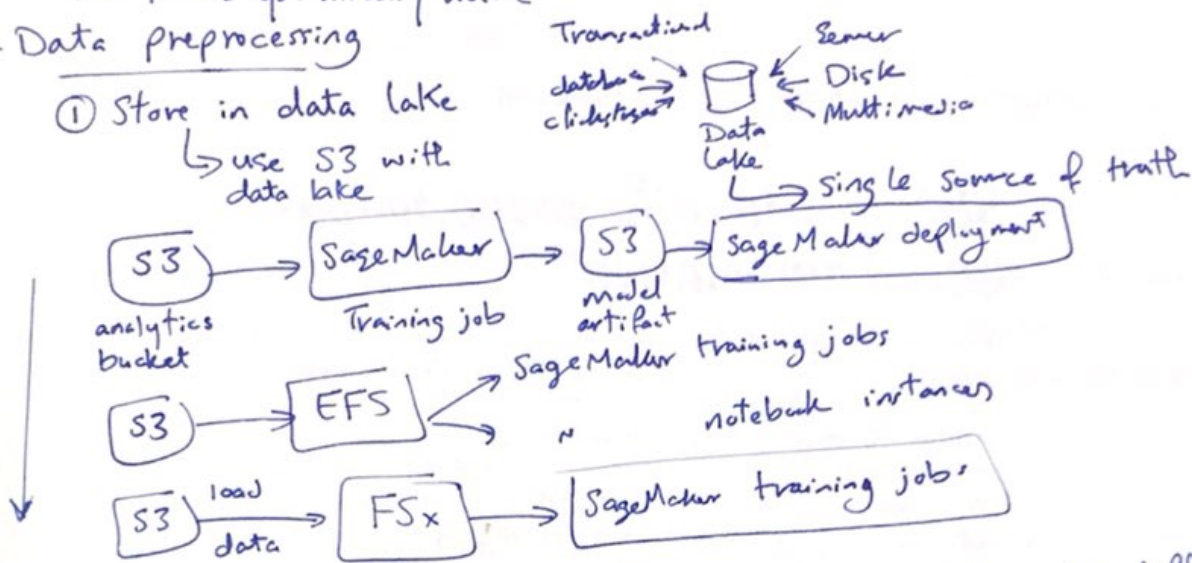 Data preprocessing
① Store in data lake
use S3 with
data lake
Transactional
database
clickstream
Data
Lake
Sensor
Disk
Multimedia
Single source of truth
S3
analytics
bucket
SageMaker
Training job
S3
model
artifact
SageMaker deployment
S3
EFS
SageMaker training jobs
" notebook instances
S3
load
data
FSx
SageMaker training jobs